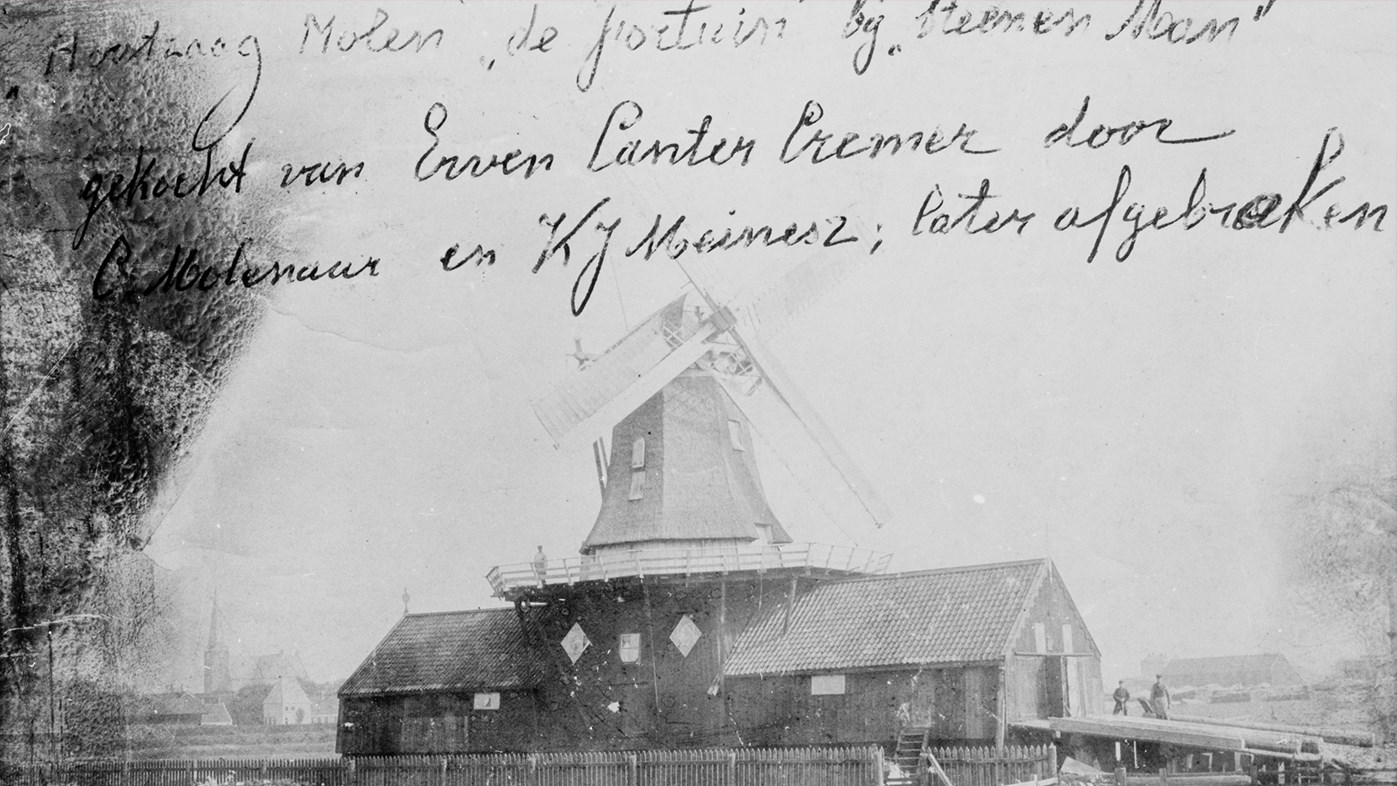 Houtzaag Molen „de fortuin" bij „Steenen Man"
gekocht van Erven Canter Cremer door
C. Molenaar en KJ Meinesz; later afgebroken